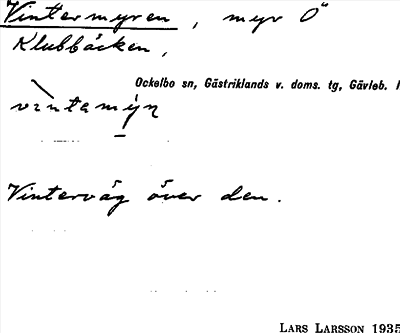 Vintermyren, myr O"
Klubbäcken,
Ockelbo sn, Gästriklands v. doms. tg, Gävleb. l
vìntamy̠ṇ
Winterväg över den.
LARS LARSSON 1935